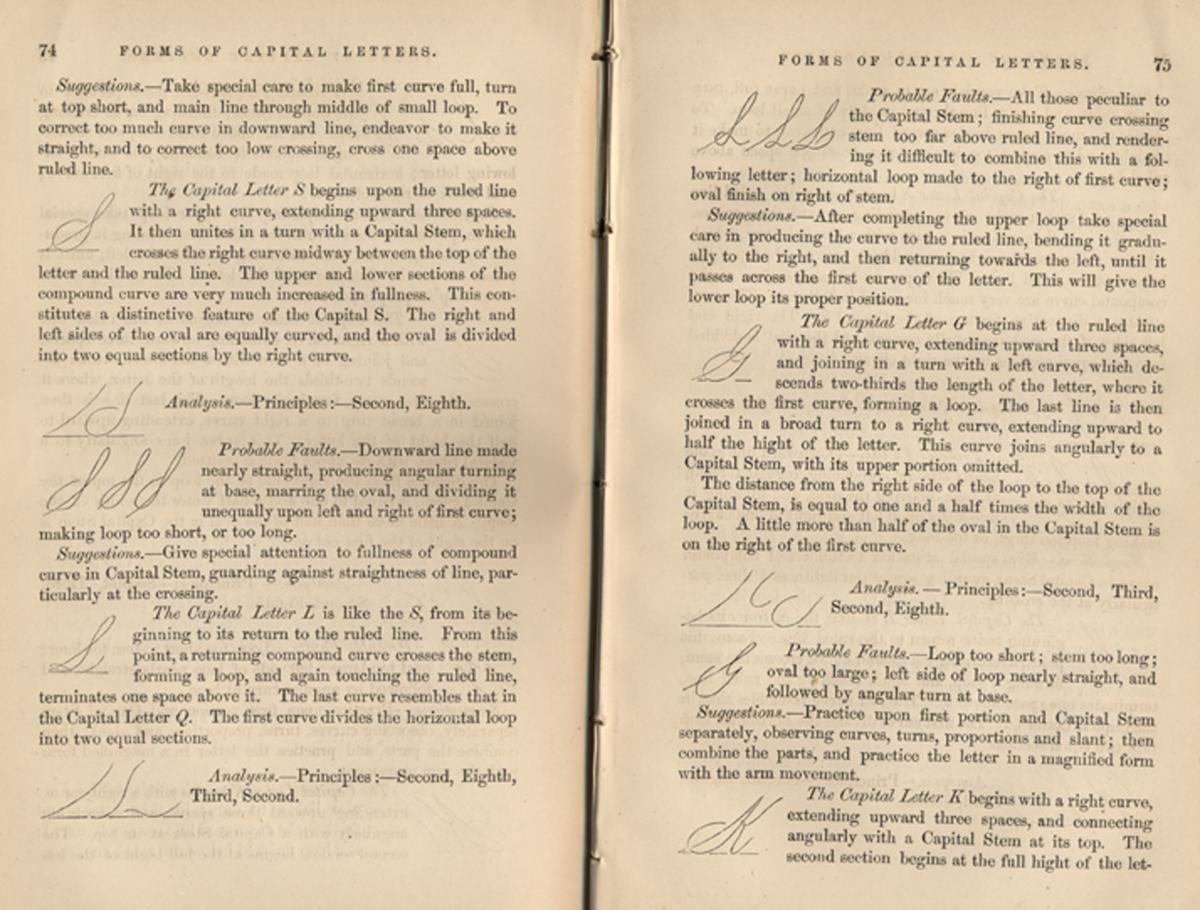 74 FORMS OF CAPITAL LETTERS.
Suggestions.—Take special care to make first curve full, turn
at top short, and main line through middle of small loop. To
correct too much curve in downward line, endeavor to make it
straight, and to correct too low crossing, cross one space above
ruled line.
The Capital Letter S begins upon the ruled line
with a right curve, extending upward three spaces.
It then unites in a turn with a Capital Stem, which
crosses the right curve midway between the top of the
letter and the ruled line. The upper and lower sections of the
compound curve are very much increased in fullness. This con-
stitutes a distinctive feature of the Capital S. The right and
left sides of the oval are equally curved, and the oval is divided
into two equal sections by the right curve.
Analysis.—Principles:—Second, Eighth.
Probable Faults.—Downward line made
nearly straight, producing angular turning
at base, marring the oval, and dividing it
unequally upon left and right of first curve;
making loop too short, or too long.
Suggestions.—Give special attention to fullness of compound
curve in Capital Stem, guarding against straightness of line, par-
ticularly at the crossing.
The Capital Letter L is like the S, from its be-
ginning to its return to the ruled line. From this
point, a returning compound curve crosses the stem,
forming a loop, and again touching the ruled line,
terminates one space above it. The last curve resembles that in
the Capital Letter Q. The first curve divides the horizontal loop
into two equal sections.
Analysis.—Principles:—Second, Eighth,
Third, Second.
FORMS OF CAPITAL LETTERS. 75
Probable Faults.—All those peculiar to
the Capital Stem; finishing curve crossing
stem too far above ruled line, and render-
ing it difficult to combine this with a fol-
lowing letter; horizontal loop made to the right of first curve;
oval finish on right of stem.
Suggestions.—After completing the upper loop take special
care in producing the curve to the ruled line, bending it gradu-
ally to the right, and then returning towards the left, until it
passes across the first curve of the letter. This will give the
lower loop its proper position.
The Capital Letter G begins at the ruled line
with a right curve, extending upward three spaces,
and joining in a turn with a left curve, which de-
scends two-thirds the length of the letter, where it
crosses the first curve, forming a loop. The last line is then
joined in a broad turn to a right curve, extending upward to
half the hight of the letter. This curve joins angularly to a
Capital Stem, with its upper portion omitted.
The distance from the right side of the loop to the top of the
Capital Stem, is equal to one and a half times the width of the
loop. A little more than half of the oval in the Capital Stem is
on the right of the first curve.
Analysis.—Principles:—Second, Third,
Second, Eighth.
Probable Faults.—Loop too short; stem too long;
oval too large; left side of loop nearly straight, and
followed by angular turn at base.
Suggestions.—Practice upon first portion and Capital Stem
separately, observing curves, turns, proportions and slant; then
combine the parts, and practice the letter in a magnified form
with the arm movement.
The Capital Letter K begins with a right curve,
extending upward three spaces, and connecting
angularly with a Capital Stem at its top. The
second section begins at the full hight of the let-